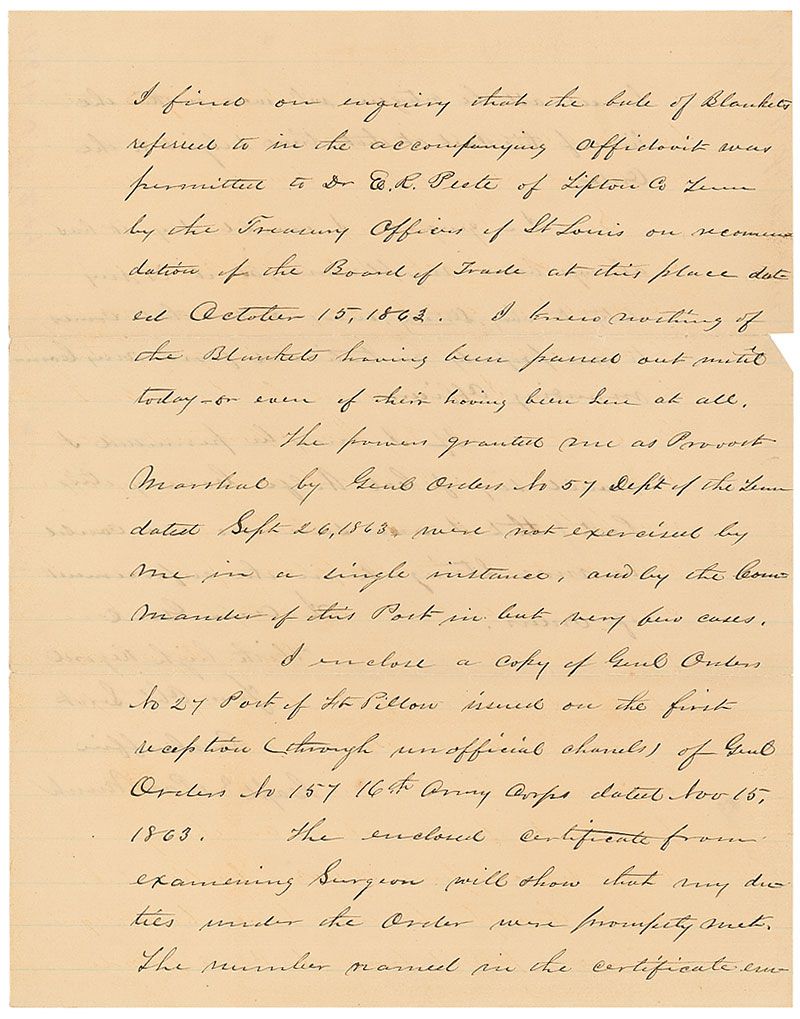 I find on enquiry that the bale of Blankets
referred to in the accompanying affidavit was
permitted to Dr E. R. Peete of Tipton Co Tenn
by the Treasury Officers of St Louis on recomen
dation of the Board of Trade at this place dat
ed October 15, 1863. I knew nothing of
the Blankets having been passed out until
today – or even of their having been here at all.
The powers granted me as Provost
Marshal by Genl Orders No 57 Dept of the Tenn
dated Sept 26, 1863. were not exercised by
me in a single instance, and by the Com-
mander of this Post in but very few cases.
I enclose a copy of Genl Orders
No 27 Post of Ft Pillow issued on the first
reception (through unofficial chanels) of Genl
Orders No 157 16th Army Corps dated Nov 15,
1863. The enclosed certificate from
examening Surgeon will show that my du-
ties under the Order were promptly met.
The number named in the certificate em-